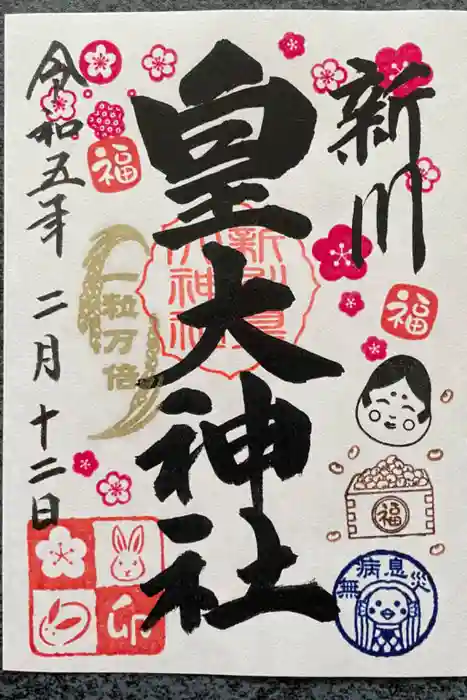 新川
皇大神社
令和五年 二月 十二日
福
一粒万倍
福
福
無病息災
卯